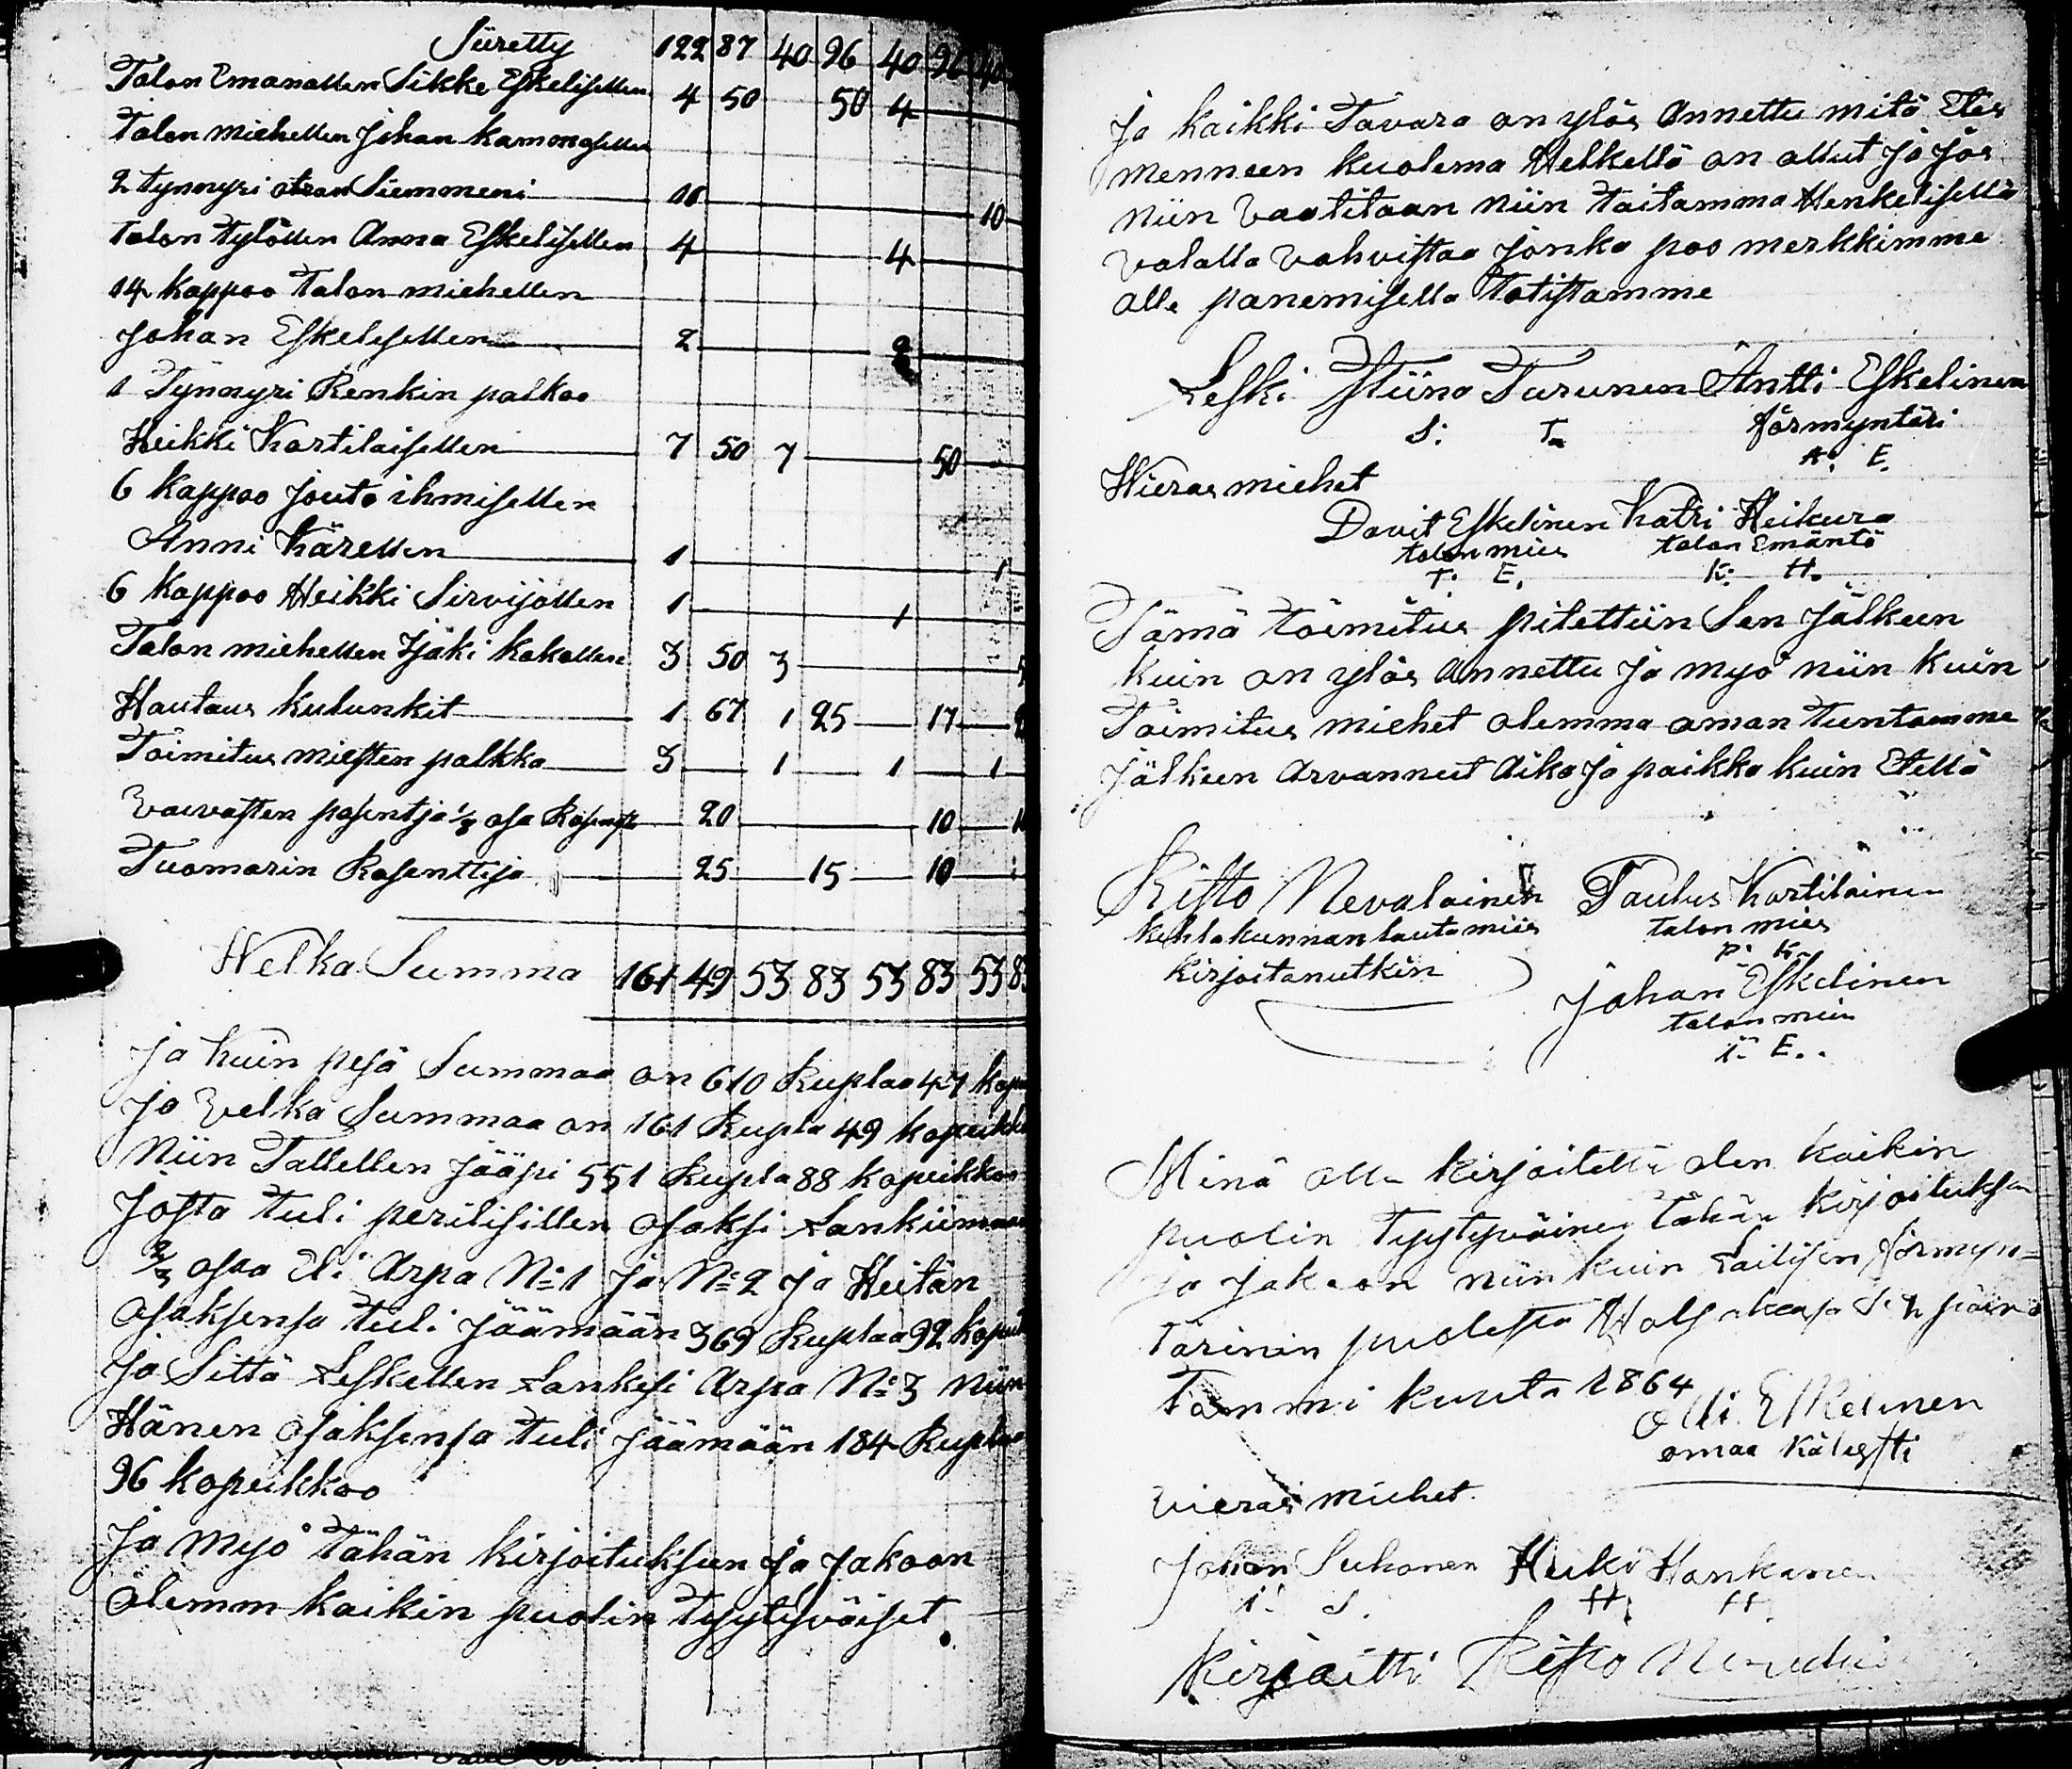 Siiretty 122 87 40 96 40 96 40
Talon Emanallen Sikke Eskelisellen 4 50 50 4
Talon miehellen Johan kammosellen
2 tynnyri otran Siemmeni 10 10
talon tytöllen Anna Eskelisellen 4 4
14 kappoo talon miehellen
Johan Eskelisellen 2 2
1 Tynnyri Renkin palkoo
Heikki Kortilaisellen 7 50 7 50
6 kappoo Jouto ihmisellen
Anni Kärellen 1 1
6 kappoo Heikki Sirvijöllen 1 1
Talon miehellen Isaki kokollen 3 50 3
Hautaus kulunkit 1 67 1 25 17
Toimitus miesten palkka 3 1 1 1
Vaivasten posentja 1/8 osa 20 10
Tuomarin Rosenttija 25 15 10
Welka Summa 161 49 53 83 53 83 53 83
ja kuin pesä Summaa on 610 Ruplaa 47
ja velka Summaa on 161 Rupla 49 kopeikka
Niin Tallellen Jääpi 551 Rupla 88 kopeikkoo
josta tuli perilisillen osaksi Lankiimaan
2/3 osaa Eli Arpa No 1 ja No 2 ja Heitän
osaksensa tuli jäämään 369 Ruplaa 92
ja Sittä Leskellen Lankesi Arpa No 3 Niin
Hänen osaksensa tuli Jäämään 184 Ruplaa
96 kopeikkoo
Ja myö tähän kirjoituksen ja Jakoon
olemm kaikin puolin tyytyväiset
ja kaikki Tavara on ylös Annettu mitä Etes
menneen kuolema Hetkellä on ollut ja jos
Niin Vaatitaan Niin Taitamma Henkelisellä
Valalla Vahvistaa jonka poo merkkimme
alle panemisella Totistamme
Leski Stiina Turunen Antti Eskelinen
S: T. förmyntäri
A: E.
Wieras miehet
Davit Eskelinen Katri Heikura
talon mies talon Emäntä
T: E. K: H.
Tämä töimitus pitettiin Sen Jälkeen
kuin on ylös Annettu ja myö niin kuin
Toimitus miehet olemma oman tuntomme
jälkeen Arvanneet Aika ja paikka kuin Etellä
Risto Nevalainen Paulus Kortilainen
kihlakunnan lautamiis talon mies
P. K.
kirjoitanutkin
Johan Eskelinen
talon miis
i: E..
Minä alla kirjoitettu olen kaikin
puolin Tyytyväinen tähän kirjoituksen
ja Jakoon niin kuin Lailisen förmyn=
tärinin puolesta päivä
Tammi kuuta 1864
Olli Eskelinen
omaa kälesti
vieras miehet
Johan Suhonen Heiki Hankanen
i: S. H. H.
Kirjoitti Risto